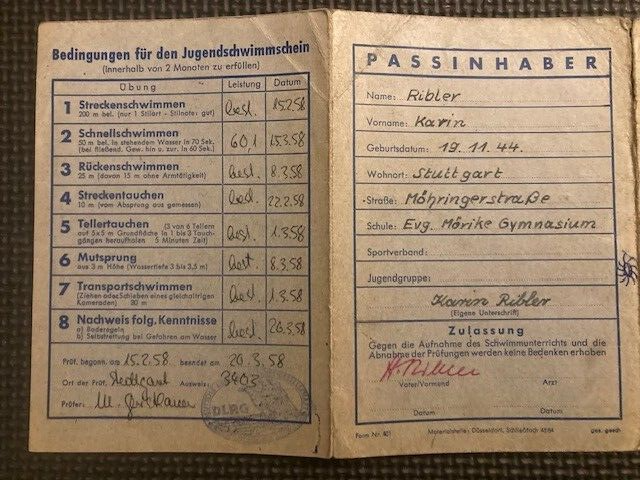 Bedingungen für den Jugendschwimmschein
(Innerhalb von 2 Monaten zu erfüllen)
Übung Leistung Datum
1 Streckenschwimmen
200 m bel. (nur 1 Stilart - Stilnote: gut) best. 15.2.58
2 Schnellschwimmen
50 m bel. in stehendem Wasser in 70 Sek.
(bei fließend. Gew. hin u. zur. in 60 Sek.) 60,1 15.3.58
3 Rückenschwimmen
25 m (davon 15 m ohne Armtätigkeit) best. 8.3.58
4 Streckentauchen
10 m (vom Absprung aus gemessen) best. 22.2.58
5 Tellertauchen (3 von 6 Tellern
auf 5x5 m Grundfläche in 1 bis 3 Tauch-
gängen heraufholen 5 Minuten Zeit) best. 1.3.58
6 Mutsprung
aus 3 m Höhe (Wassertiefe 3 bis 3,5 m) best. 8.3.58
7 Transportschwimmen
(Ziehen oder Schieben eines gleichaltrigen
Kameraden) 20 m best. 1.3.58
8 Nachweis folg. Kenntnisse
a) Baderegeln
b) Selbstrettung bei Gefahren am Wasser best. 20.3.58
Prüf. begann am 15.2.58 beendet am 20.3.58
Ort der Prüf. Stuttgart Ausweis: 3403
Prüfer:
DLRG
PASSINHABER
Name: Ribler
Vorname: Karin
Geburtsdatum: 19.11.44.
Wohnort: Stuttgart
Straße: Möhringerstraße
Schule: Evg. Mörike Gymnasium
Sportverband:
Jugendgruppe:
Karin Ribler
(Eigene Unterschrift)
Zulassung
Gegen die Aufnahme des Schwimmunterrichts und die
Abnahme der Prüfungen werden keine Bedenken erhoben
H. Ribler
Vater/Vormund Arzt
Datum Datum
Form Nr. 801 Materialstelle: Düsseldorf, Schließfach Ges. gesch.